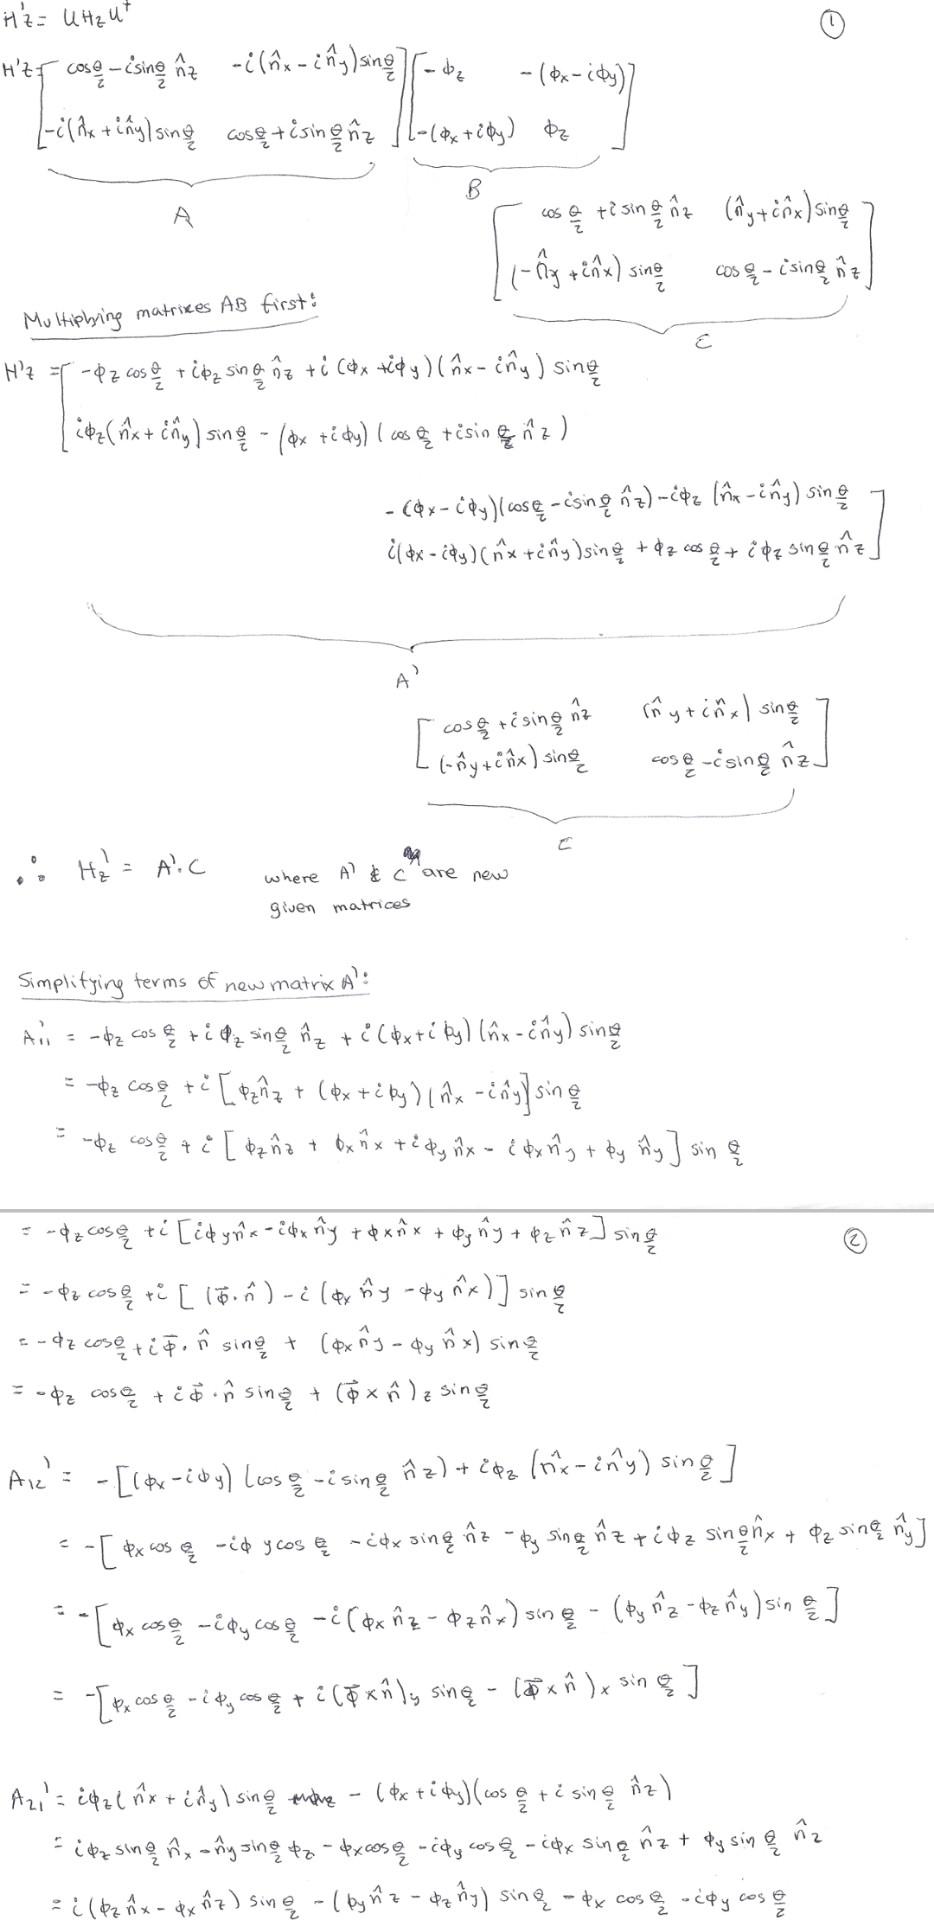 H'z = U Hz U†
①
H'z = [ cos θ/2 - i sin θ/2 n̂z    -i(n̂x - i n̂y) sin θ/2 ] [ -ϕz    -(ϕx - iϕy) ]
[ -i(n̂x + i n̂y) sin θ/2    cos θ/2 + i sin θ/2 n̂z ] [ -(ϕx + iϕy)    ϕz ]
A
B
[ cos θ/2 + i sin θ/2 n̂z    (n̂y + i n̂x) sin θ/2 ]
[ (-n̂y + i n̂x) sin θ/2    cos θ/2 - i sin θ/2 n̂z ]
C
Multiplying matrixes AB first:
H'z = [ -ϕz cos θ/2 + iϕz sin θ/2 n̂z + i(ϕx + iϕy)(n̂x - i n̂y) sin θ/2
iϕz(n̂x + i n̂y) sin θ/2 - (ϕx + iϕy)(cos θ/2 + i sin θ/2 n̂z)
-(ϕx - iϕy)(cos θ/2 - i sin θ/2 n̂z) - iϕz (n̂x - i n̂y) sin θ/2 ]
i(ϕx - iϕy)(n̂x + i n̂y) sin θ/2 + ϕz cos θ/2 + iϕz sin θ/2 n̂z ]
A'
[ cos θ/2 + i sin θ/2 n̂z    (n̂y + i n̂x) sin θ/2 ]
[ (-n̂y + i n̂x) sin θ/2    cos θ/2 - i sin θ/2 n̂z ]
C
∴ Hz' = A'·C    where A' & C are new
given matrices
Simplifying terms of new matrix A':
A11' = -ϕz cos θ/2 + iϕz sin θ/2 n̂z + i(ϕx + iϕy)(n̂x - i n̂y) sin θ/2
= -ϕz cos θ/2 + i[ϕz n̂z + (ϕx + iϕy)(n̂x - i n̂y)] sin θ/2
= -ϕz cos θ/2 + i[ϕz n̂z + ϕx n̂x + iϕy n̂x - iϕx n̂y + ϕy n̂y] sin θ/2
= -ϕz cos θ/2 + i[iϕy n̂x - iϕx n̂y + ϕx n̂x + ϕy n̂y + ϕz n̂z] sin θ/2
②
= -ϕz cos θ/2 + i[(ϕ⃗·n̂) - i(ϕx n̂y - ϕy n̂x)] sin θ/2
= -ϕz cos θ/2 + iϕ⃗·n̂ sin θ/2 + (ϕx n̂y - ϕy n̂x) sin θ/2
= -ϕz cos θ/2 + iϕ⃗·n̂ sin θ/2 + (ϕ⃗ x n̂)z sin θ/2
A12' = -[(ϕx - iϕy)(cos θ/2 - i sin θ/2 n̂z) + iϕz (n̂x - i n̂y) sin θ/2]
= -[ϕx cos θ/2 - iϕy cos θ/2 - iϕx sin θ/2 n̂z - ϕy sin θ/2 n̂z + iϕz sin θ/2 n̂x + ϕz sin θ/2 n̂y]
= -[ϕx cos θ/2 - iϕy cos θ/2 - i(ϕx n̂z - ϕz n̂x) sin θ/2 - (ϕy n̂z - ϕz n̂y) sin θ/2]
= -[ϕx cos θ/2 - iϕy cos θ/2 + i(ϕ⃗ x n̂)y sin θ/2 - (ϕ⃗ x n̂)x sin θ/2]
A21' = iϕz(n̂x + i n̂y) sin θ/2 - (ϕx + iϕy)(cos θ/2 + i sin θ/2 n̂z)
= iϕz sin θ/2 n̂x - n̂y sin θ/2 ϕz - ϕx cos θ/2 - iϕy cos θ/2 - iϕx sin θ/2 n̂z + ϕy sin θ/2 n̂z
= i(ϕz n̂x - ϕx n̂z) sin θ/2 - (ϕy n̂z - ϕz n̂y) sin θ/2 - ϕx cos θ/2 - iϕy cos θ/2